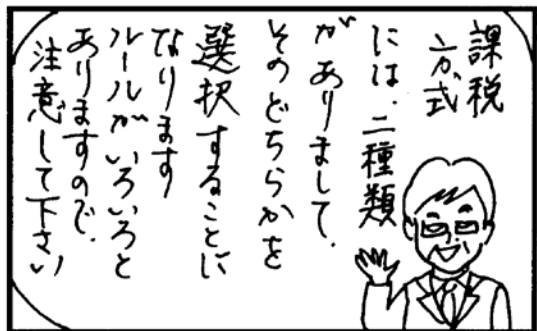 課税
方式
には、二種類
がありまして、
そのどちらかを
選択することに
なります
ルールがいろいろと
ありますので、
注意して下さい